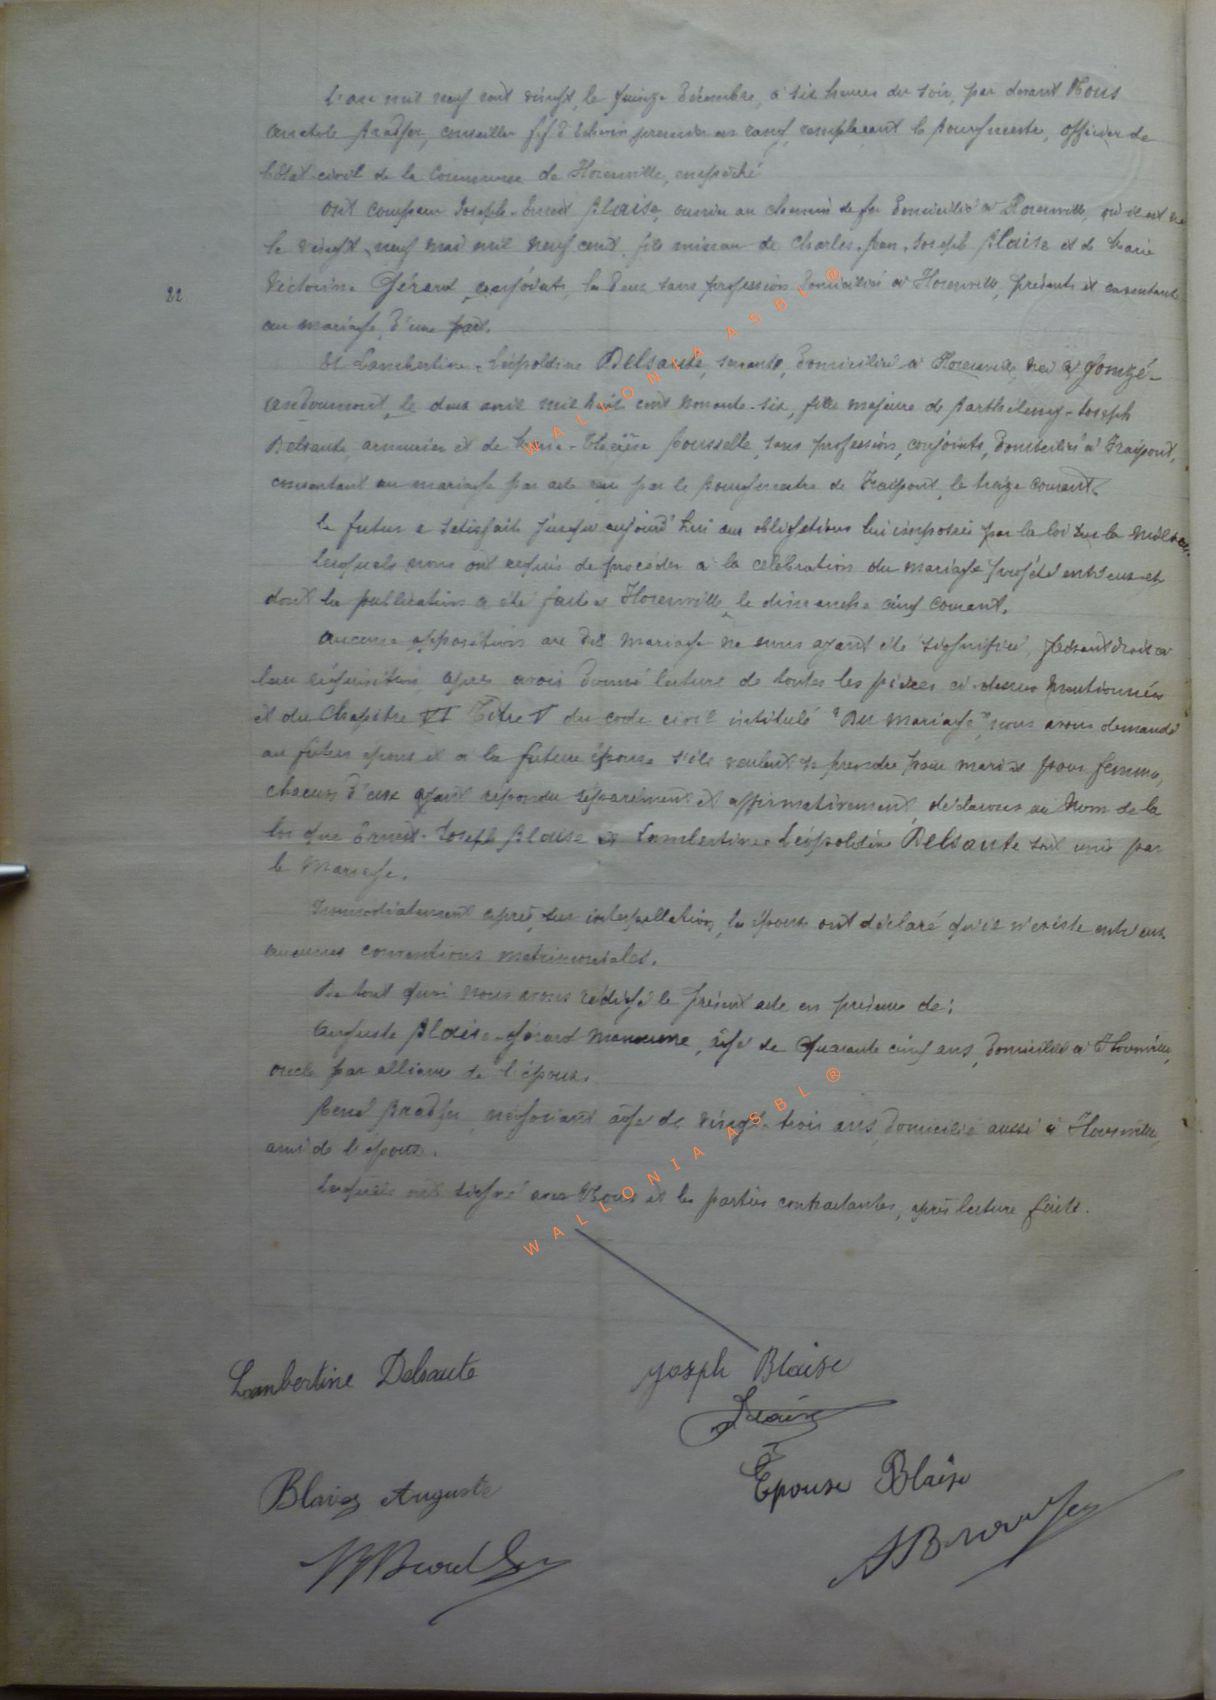 L'an mil neuf cent vingt, le quinze Décembre, à six heures du soir, par devant Nous
Anatole Bradfer, conseiller ff d'Echevin premier en rang, remplaçant le Bourgmestre, Officier de
l'Etat-civil de la Commune de empêché
Ont comparu Joseph-Ernest Blaise, ouvrier au chemin de fer domicilié à où il est né
le vingt-neuf mai mil neuf cent, fils mineur de Charles-Jean-Joseph Blaise et de Marie
22
Victorine Gérard, conjoints, les deux sans profession domiciliés à présents et consentants
au mariage, d'une part.
Et Lambertine-Léopoldine Delsaute, servante, domiciliée à née à Gomzé-
Andoumont, le deux avril mil huit cent nonante-six, fille majeure de Barthélemy-Joseph
Delsaute, armurier et de Marie-Thérèse sans profession, conjoints, domiciliés à Fraipont,
consentant au mariage par acte par le Bourgmestre de Fraipont, le treize courant.
Le futur a satisfait jusqu'aujourd'hui aux obligations lui imposées par la loi sur la milice.
Lesquels nous ont requis de procéder à la célébration du mariage projeté entr'eux et
dont la publication a été faite à le dimanche cinq courant.
Aucune opposition au dit mariage ne nous ayant été signifiée, faisant droit à
leur réquisition, après avoir donné lecture de toutes les pièces ci-dessus mentionnées
et du Chapitre VI Titre V du code civil intitulé "Du mariage", nous avons demandé
au futur époux et à la future épouse s'ils veulent se prendre pour mari et pour femme,
chacun d'eux ayant répondu séparément et affirmativement, déclarons au nom de la
loi que Ernest-Joseph Blaise et Lambertine-Léopoldine Delsaute sont unis par
le Mariage.
Immédiatement après, sur interpellation, les époux ont déclaré qu'il n'existe entr'eux
aucunes conventions matrimoniales.
De tout quoi nous avons rédigé le présent acte en présence de:
Auguste Blaise-Gérard âgé de quarante cinq ans, domicilié à
oncle par alliance de l'époux.
René Bradfer, négociant âgé de vingt-trois ans, domicilié aussi à
ami de l'époux.
Lesquels ont signé avec Nous et les parties contractantes, après lecture faite.
WALLONIA ASBL ®
WALLONIA ASBL ®
Lambertine Delsaute
Joseph Blaise
Epouse Blaise
Blaise Auguste